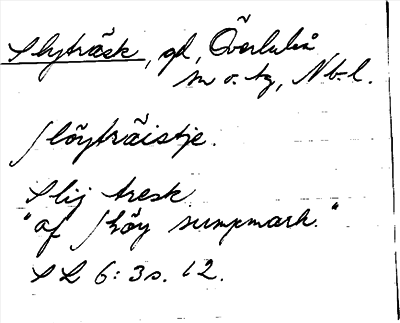 Slyträsk, gd, Överluleå
sn o. tg, Nb. l.
slöyträistje.
Slij tresk
"af slöy sumpmark."
SL 6:3 s. 12.